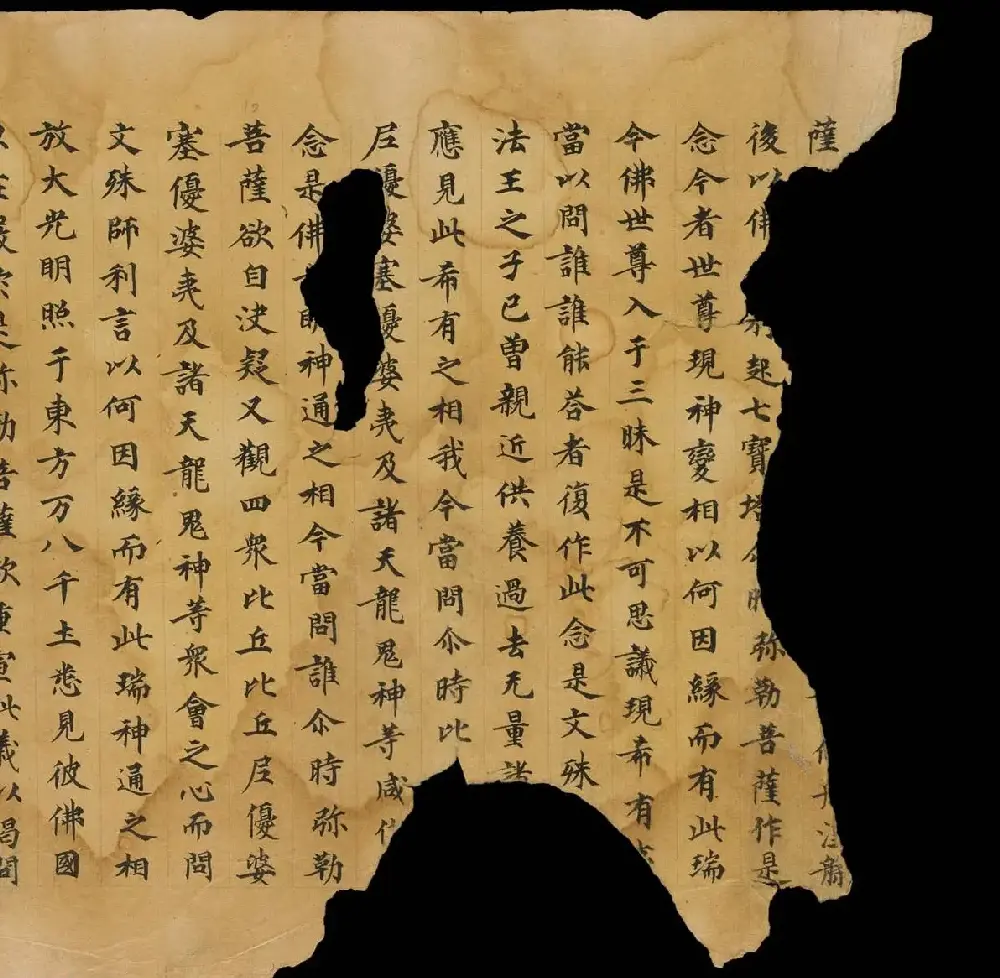 薩 槃
後以佛 起七寶塔 弥勒菩薩作是
念今者世尊現神變相以何因緣而有此瑞
今佛世尊入于三昧是不可思議現希有
當以問誰誰能荅者復作此念是文殊
法王之子已曾親近供養過去无量諸
應見此希有之相我今當問尒時比
尼優婆塞優婆夷及諸天龍鬼神等咸作
念是佛 明神通之相今當問誰尒時弥勒
菩薩欲自決疑又觀四衆比丘比丘尼優婆
塞優婆夷及諸天龍鬼神等衆會之心而問
文殊師利言以何因緣而有此瑞神通之相
放大光明照于東方万八千土悉見彼佛國
嚴於是弥勒菩薩欲重宣此義以偈問